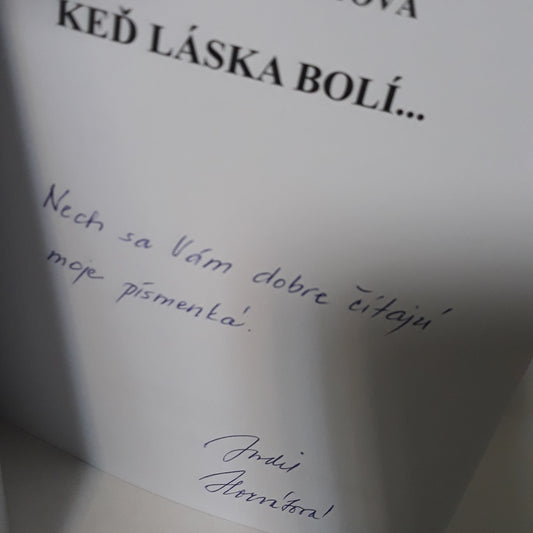 KEĎ LÁSKA BOLÍ...
Nech sa Vám dobre čítajú
moje písmenká.
Horváťová